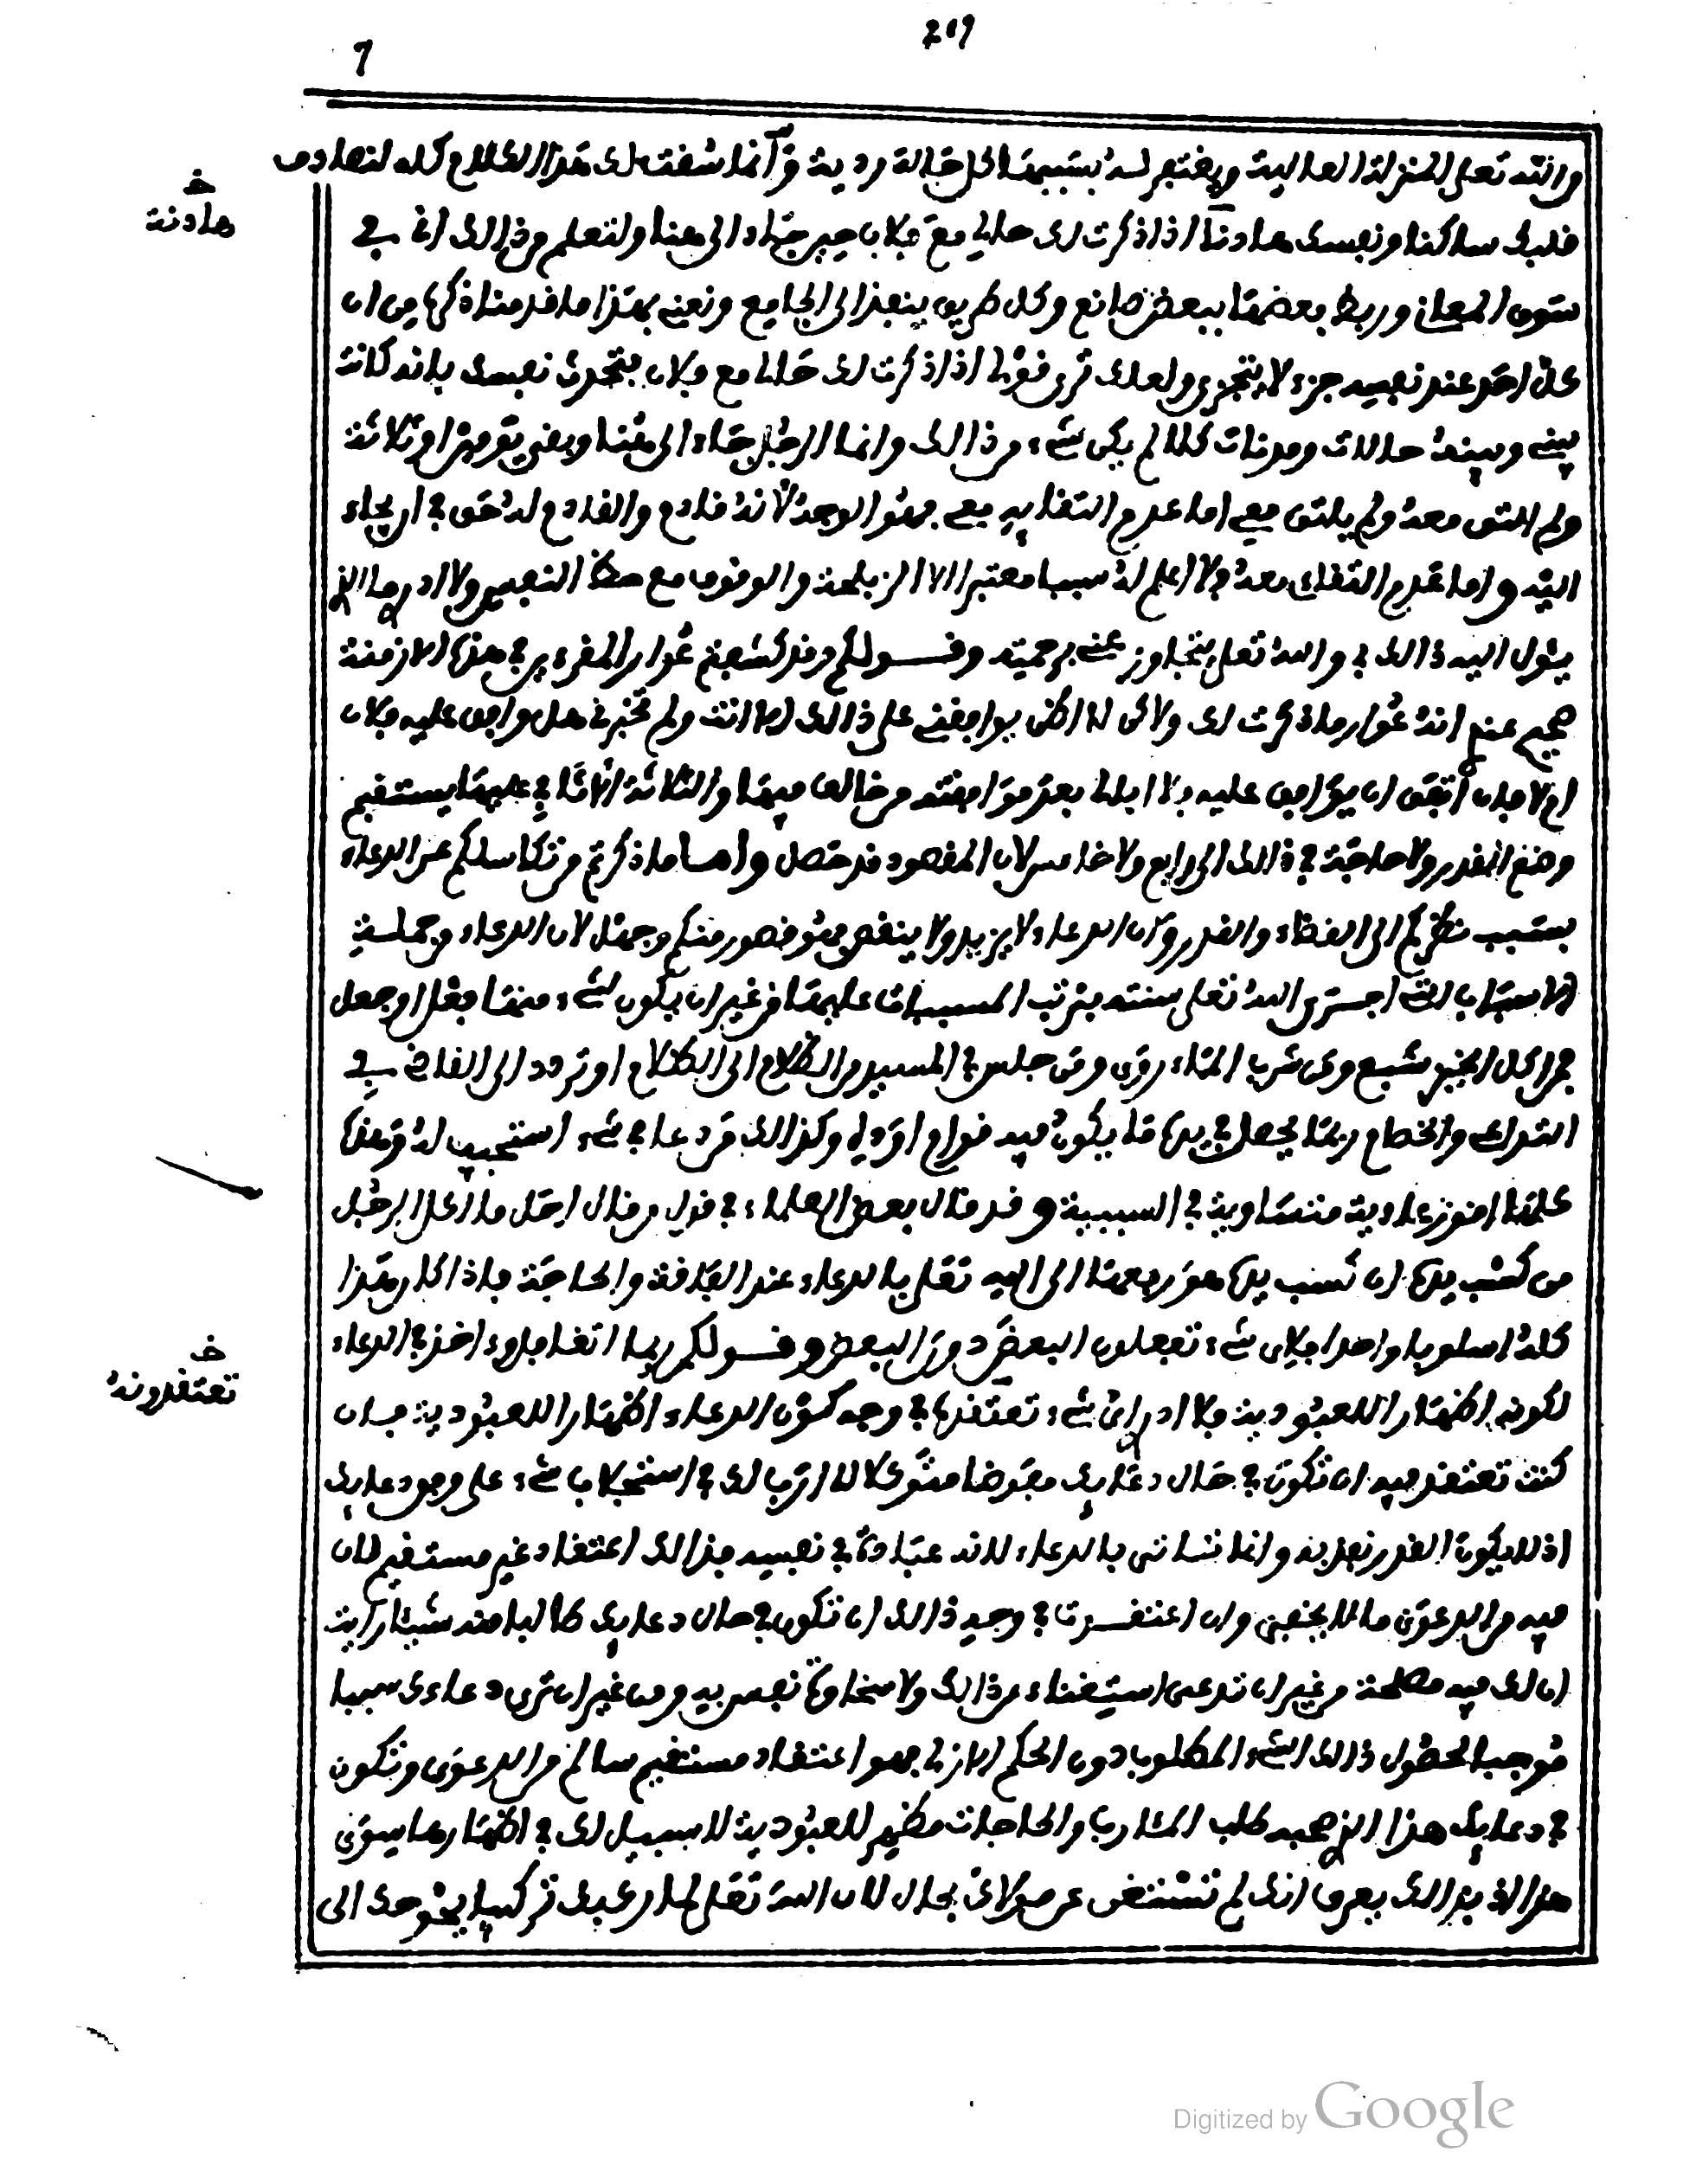 209
7
والله تعلى المنزلة العالية ويفتح له بسببها الى حالة ردية وانما سفت لك هذا الكلام كله لتصادف
خـ
هادنة
قلبك ساكنا ونفسك هادنا اذا ذكرت لك حالي مع فلان حين جاء الى هنا ولتعلم من ذالك اني في
سوق المعاني وربط بعضها ببعض صانع وكل طريق ينفذ الى الجامع ونعني بهذا ما قدمناه ذكره من ان
كل احد عند نفسه جزء لا يتجزى ولعلك ترى قولي اذا ذكرت لك حالي مع فلان يتحدث نفسك بانه كانت
بيني وبينه حالات ومدنات كلا لم يكن شيء من ذالك وانما الرجل جاء الى هنا وبقي يومين او ثلاثة
ولم التق معه ولم يلتق معي اما عدم التقايه معي فهو الوجه لانه قادم والقادم له حق في ان يجاء
اليه واما عدم التقاءي معه فلا اعلم له سببا معتبرا الا الزبلحة والوقوف مع حظ النفس ولا ادري ما الذي
يئول اليه ذالك والله تعلى يتجاوز عني برحمته وقولكم وقد كشفتم عوار الفقراء في هذه الازمنة
صحيح عندي انه عوار ما ذكرت لك ولاكن لا اظن يوافقني على ذالك الا انت ولم تخبرني هل وافق عليه فلان
ام لا فان اتفق ان يوافق عليه فلا ابالي بعد موافقته من خالف فيها والثلاثة الاثافي عليها يستقيم
وضع القدر ولا حاجة في ذالك الى رابع ولا خامس لان المقصود قد حصل واما ما ذكرتم من تكاسلكم عن الدعاء
بسبب نظركم الى القضاء والقدر وان الدعاء لا يزيد ولا ينقص فهو قصور منكم وجهل لان الدعاء من جملة
الاسباب التي اجرى الله تعلى سنته بترتب المسببات عليها من غير ان يكون لشيء منها فعل او جعل
فمن اكل الخبز شبع ومن شرب الماء روي ومن جلس في المسيد من الظلام الى الظلام او تردد الى القاضي في
التداعي والخصام ربما يحصل في يده ما يكون فيه قوام اوده وكذالك من دعا في شيء استجيب له وهذه
كلها امور عادية متساوية في السببية وقد قال بعض العلماء في قول من قال احل ما اكل الرجل
من كسب يده ان كسب يده هو رفعها الى الله تعلى بالدعاء عند الفاقة والحاجة فاذا كان هذا
كله اسلوبا واحدا فلاي شيء تفعلون البعض دون البعض وقولكم ربما اتغافل واخذ في الدعاء
خـ
تعتقدونه
لكونه اظهارا للعبودية فلا ادري اي شيء تعتقده في وجه كون الدعاء اظهارا للعبودية فان
كنت تعتقد فيه ان تكون في حال دعايك مفوضا متوكلا لا ارب لك في استجلاب شيء على وجود دعايك
اذ لا يكون القدر نفذ به وانما تتانى بالدعاء لانه عبادة في نفسه فذالك اعتقاد غير مستقيم لان
فيه من الدعوى ما لا يخفى وان اعتقدت في وجه ذالك ان تكون في حال دعايك طالبا منه شيئا رايت
ان لك فيه مصلحة من غير ان تدعى استغناء عن ذالك ولا سخاوة نفس به ومن غير ان ترى دعاءك سببا
موجبا لحصول ذالك الشيء المطلوب دون الحكم الازلي فهو اعتقاد مستقيم سالم من الدعوى وتكون
في دعايك هذا الذي صحبه طلب المئارب والحاجات مظهر للعبودية لا سبيل لك في اظهارها سوى
هذا اذ بذالك يعرف انك لم تستغن عن مولاك بحال لان الله تعلى لما ركبك تركيبا يحوجك الى